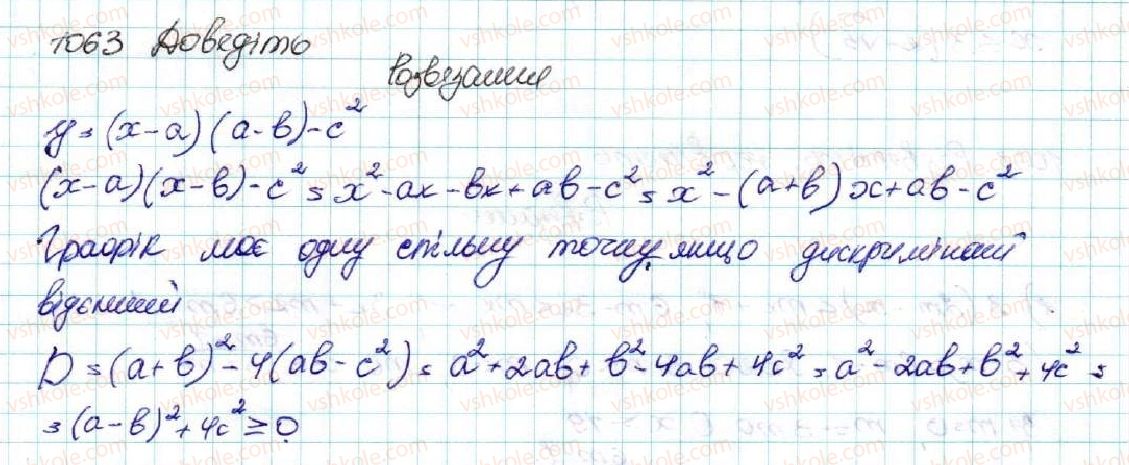 1063 Доведіть
Розвязання
y = (x-a)(a-b)-c²
(x-a)(x-b)-c² = x²-ax-bx+ab-c² = x²-(a+b)x+ab-c²
Графік має одну спільну точку, якщо дискримінант
відємний
D = (a+b)²-4(ab-c²) = a²+2ab+b²-4ab+4c² = a²-2ab+b²+4c² =
= (a-b)²+4c² ≥ 0